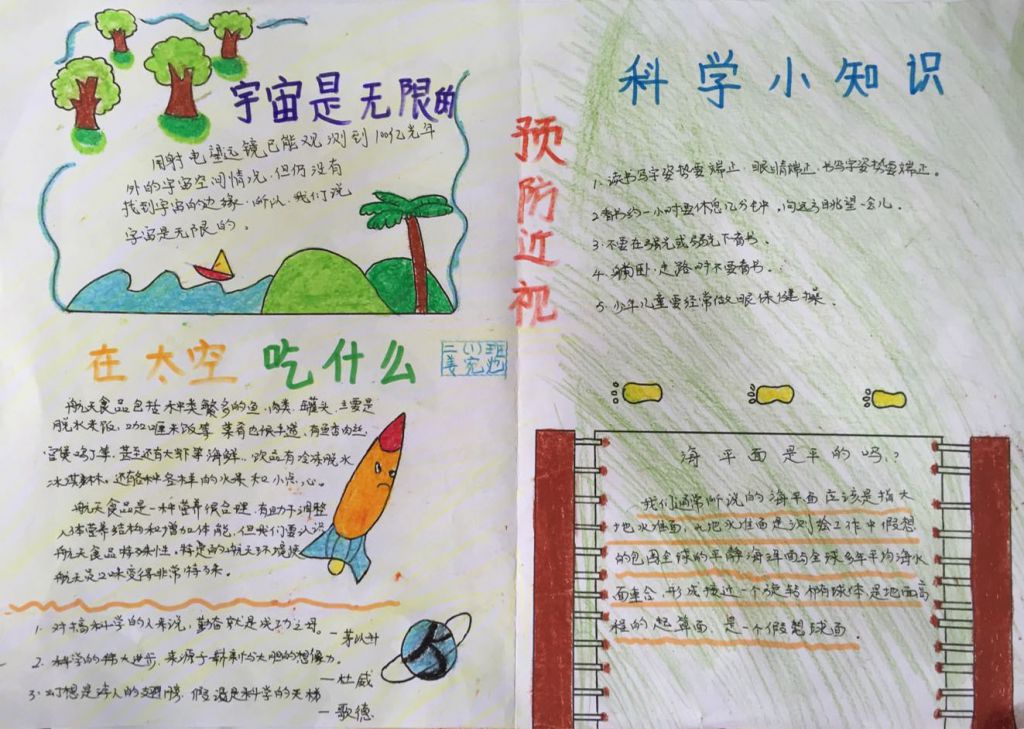 宇宙是无限的
用射电望远镜已能观测到100亿光年
外的宇宙空间情况.但仍没有
找到宇宙的边缘.所以.我们说
宇宙是无限的。
在太空吃什么
二(1)班
姜
航天食品包括种类繁多的鱼.肉类.罐头.主要是
脱水米饭,咖喱米饭等.菜肴也很丰道.有鱼香肉丝
宫保鸡丁等.甚至还有大虾等海鲜..饮品有冷冻脱水
冰淇淋.还有各种各样的水果和小点心。
航天食品是一种营养很合理.有助于调整
人体营养结构和增加体能.但我们要认识
航天食品特殊性.特定的航天环境使
航天员口味变得非常特殊。
1.对搞科学的人来说,勤奋就是成功之母。
一茅以升
2.科学的伟大进步,来源于崭新与大胆的想像力。
一杜威
3.幻想是诗人的翅膀,假设是科学的天梯
一歌德
科学小知识
预防近视
1.读书写字姿势要端正.眼睛端正.书写字姿势要端正。
2.看书约一小时要休息几分钟,向远方眺望一会儿。
3.不要在强光或弱光下看书。
4.躺卧.走路时不要看书。
5.少年儿童要经常做眼保健操。
海平面是平的吗?
我们通常所说的海平面应该是指大
地水准面,大地水准面是测绘工作中假想
的包围全球的平静海洋面与全球多年平均海水
面重合.形成接近一个旋转椭球体.是地面高
程的起算面.是一个假想球面.